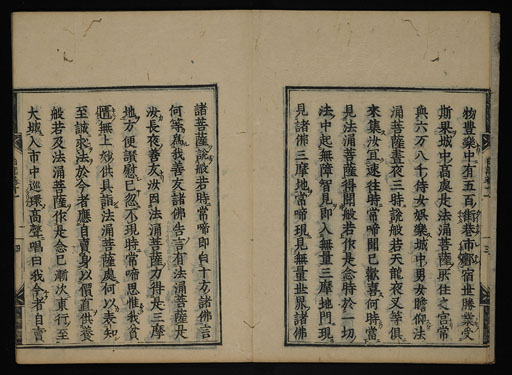 物豊樂中有五百街巷市鄽宿世勝業受
斯果城中高處是法涌菩薩所住之宮常
與六万八千侍女娯樂城中男女瞻仰法
涌菩薩晝夜三時說般若天龍夜叉等俱
來集汝宜速往時常啼聞已歡喜何時當
見法涌菩薩得聞般若作是念時於一切
法中起無障智見即入無量三摩地門現
見諸佛三摩地常啼現見無量世界諸佛
諸菩薩說般若時常啼即白十方諸佛言
何等為我善友諸佛告言有法涌菩薩是
汝長夜善友汝因法涌菩薩力得是三摩
地方便讃慰已忽不現時常啼思惟我貧
匱無上妙供具詣法涌菩薩時何以表知
至誠求法於今者應自賣身以價直供養
般若及法涌菩薩作是念已漸次東行至
大城入市中巡環高聲唱曰我今者自賣